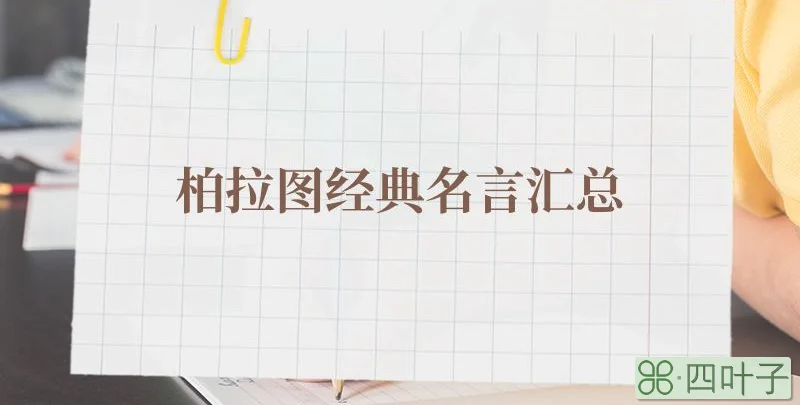 柏拉图经典名言汇总
四叶子